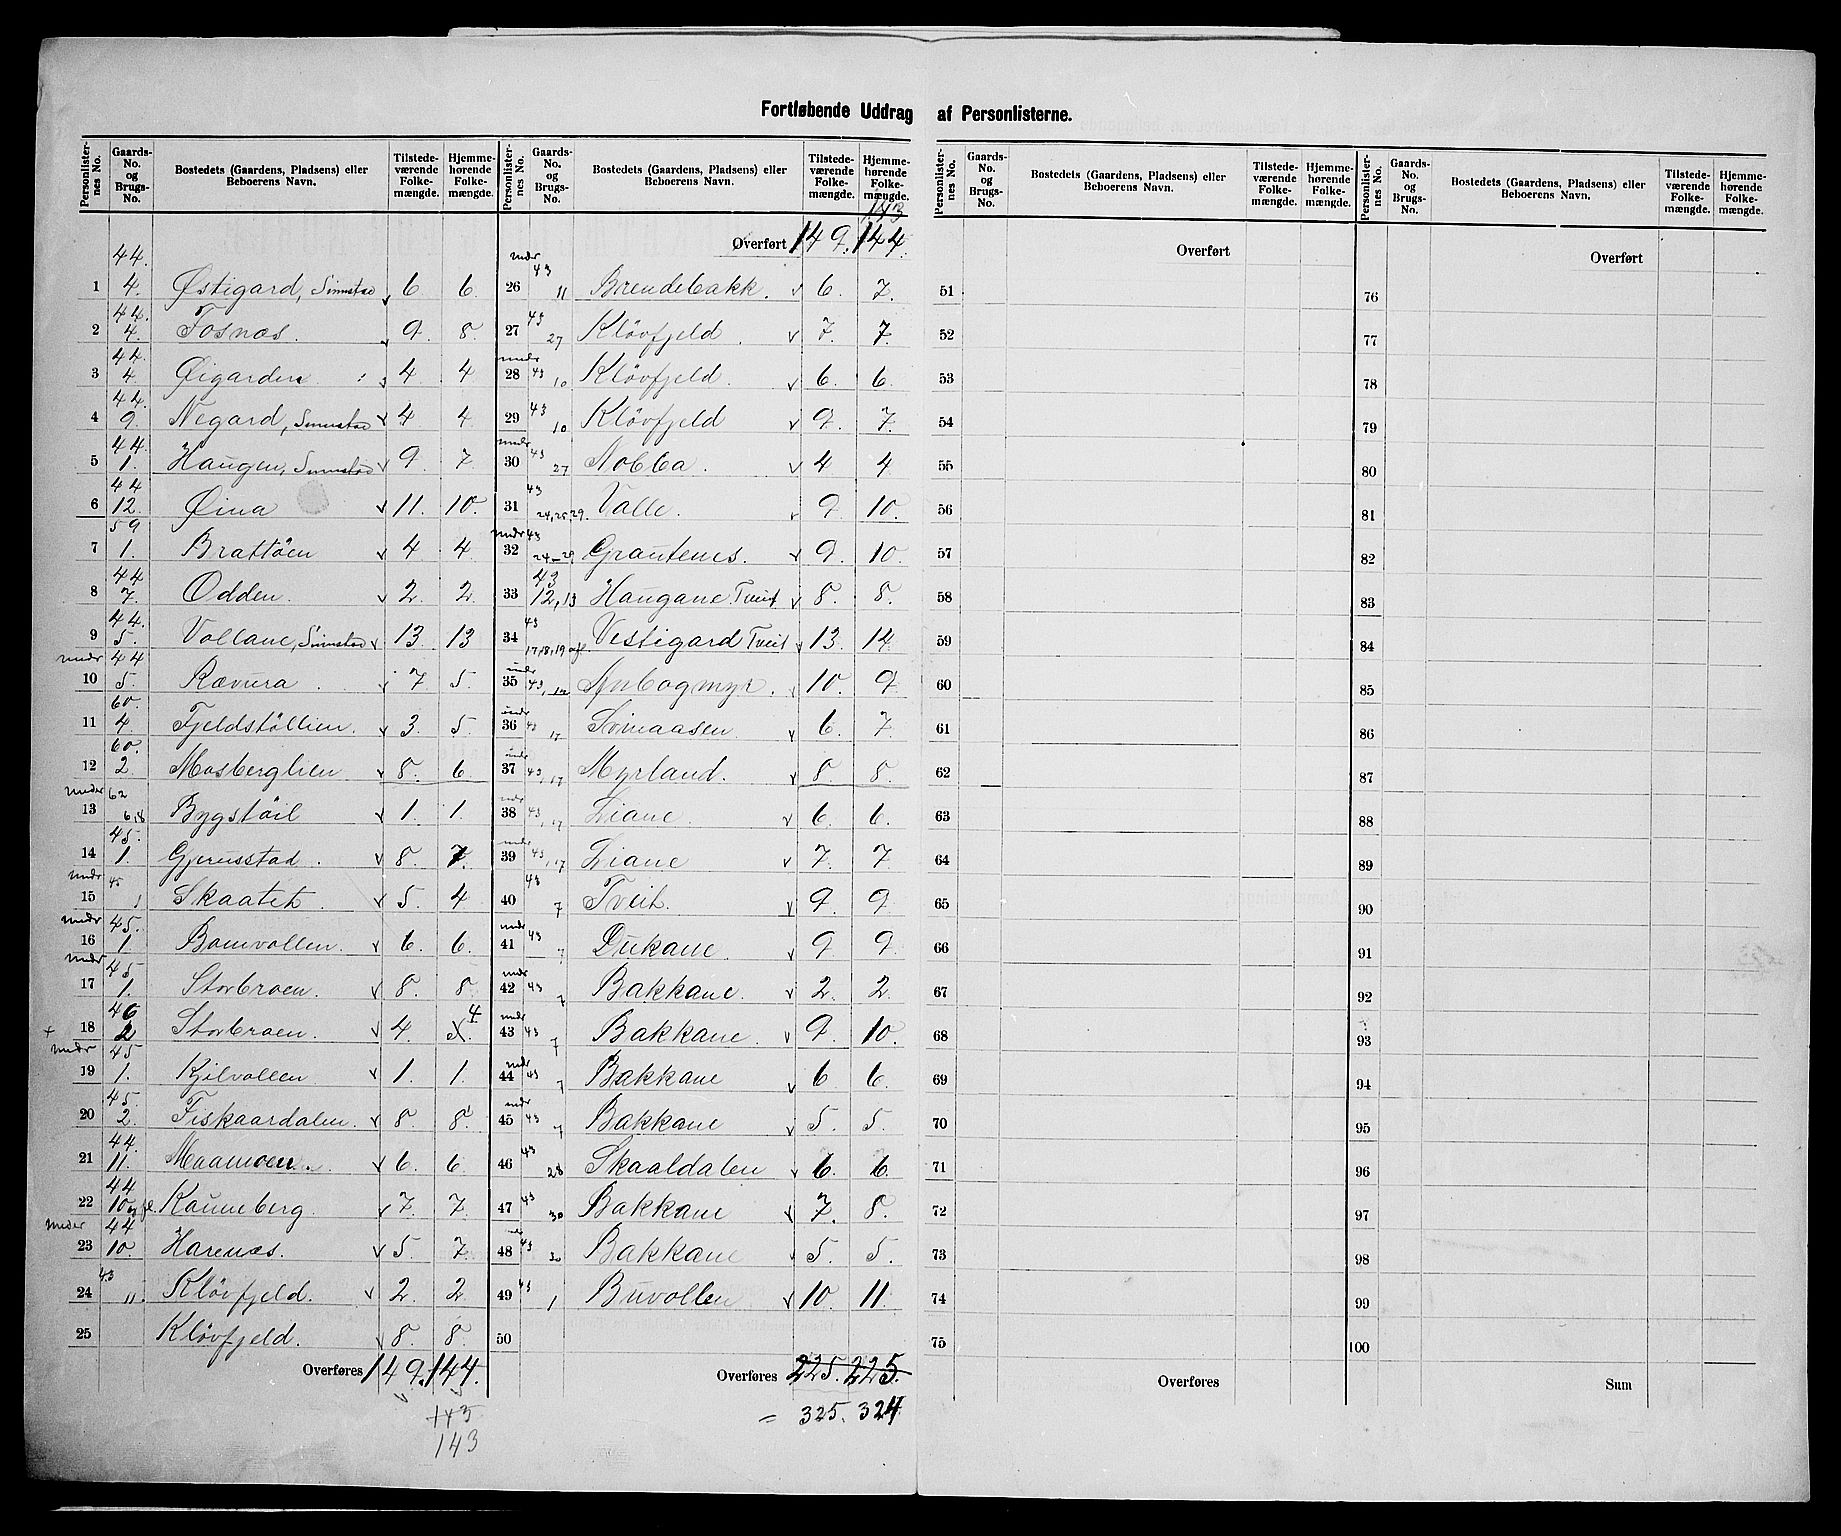 Fortløbende Uddrag af Personlisterne.
Personlisternes No. Gaards-No. og Brugs-No. Bostedets (Gaardens, Pladsens) eller Beboerens Navn. Tilstedeværende Folkemængde. Hjemmehørende Folkemængde.
1 44. 4. Østigard, Simostad 6 6.
2 44. 4. Fosnæs 9. 8.
3 44. 4. Øigarden 4. 4
4 44. 9. Negard, 4. 4.
5 44. 1. Haugen, 9. 7.
6 44 12. Øina 11. 10.
7 59 1. Brattøen 4 4
8 44 7. Odden. 2. 2.
9 44. 5. Vollane, 13. 13
under 10 44 5. Rævura 7 5.
11 60. 4 Fjeldstøllien. 3. 5.
12 60. 2. Mosberglien 8. 6.
under 13 62 6,8 Bygstøil 1. 1.
14 45. 1. Gjerusstad. 8. 7.
under 15 45 1 Skaatet. 5. 4
under 16 45. 1. Bomvollen. 6. 6.
under 17 45 1. Storbroen. 8. 8.
+ 18 46 2 Storbroen 4. 4
under 19 45 1. Kjilvollen 1. 1.
20 45. 2. Fiskaardalen. 8. 8.
21 44. 11. Maamoen. 6. 6.
22 44 10 Kauneberg. 7. 7.
under 23 44 10. Harenæs. 5. 7.
24 43 11. Kløvfjeld. 2. 2
25 Kløvfjeld. 8. 8.
Overføres 149. 144.
143
143
Personlisternes No. Gaards-No. og Brugs-No. Bostedets (Gaardens, Pladsens) eller Beboerens Navn. Tilstedeværende Folkemængde. Hjemmehørende Folkemængde.
143
Overført 149. 144.
under 26 43 11 Brendebakk. 6. 7.
27 43 27 Kløvfjeld. 7. 7.
under 28 43 10 Kløvfjeld. 6. 6.
29 43 10. Kløvfjeld 9. 7.
under 30 43 27 Nobba. 4 4
31 43 24,25,29. Valle. 9. 10.
under 32 43 24-29 Grautenes. 9. 10.
33 43 12,13 Haugane Tveit 8. 8.
34 43 17,18,19 Vestigard Tveit 13. 14
under 35 43, 10. 9.
under 36 43 17 Svinaasen 6. 7.
under 37 43, 17 Myrland. 8. 8.
under 38 43, 17 Liane. 6. 6.
under 39 43, 17 Liane 7. 7.
40 43 7 Tveit. 9. 9.
under 41 43 7 Dukane. 9. 9.
under 42 43 7 Bakkane. 2. 2.
under 43 43 7 Bakkane. 9. 10.
under 44 43 7 Bakkane 6 6.
under 45 43 7 Bakkane 5. 5.
46 43 28 Skaaldalen 6. 6.
47 43 30 Bakkane 7. 8.
48 43 30 Bakkane 5. 5.
49 43 1 Buvollen 10. 11.
50
Overføres 225. 225.
= 325. 324
Personlisternes No. Gaards-No. og Brugs-No. Bostedets (Gaardens, Pladsens) eller Beboerens Navn. Tilstedeværende Folkemængde. Hjemmehørende Folkemængde.
Overført
51
52
53
54
55
56
57
58
59
60
61
62
63
64
65
66
67
68
69
70
71
72
73
74
75
Overføres
Personlisternes No. Gaards-No. og Brugs-No. Bostedets (Gaardens, Pladsens) eller Beboerens Navn. Tilstedeværende Folkemængde. Hjemmehørende Folkemængde.
Overført
76
77
78
79
80
81
82
83
84
85
86
87
88
89
90
91
92
93
94
95
96
97
98
99
100
Sum